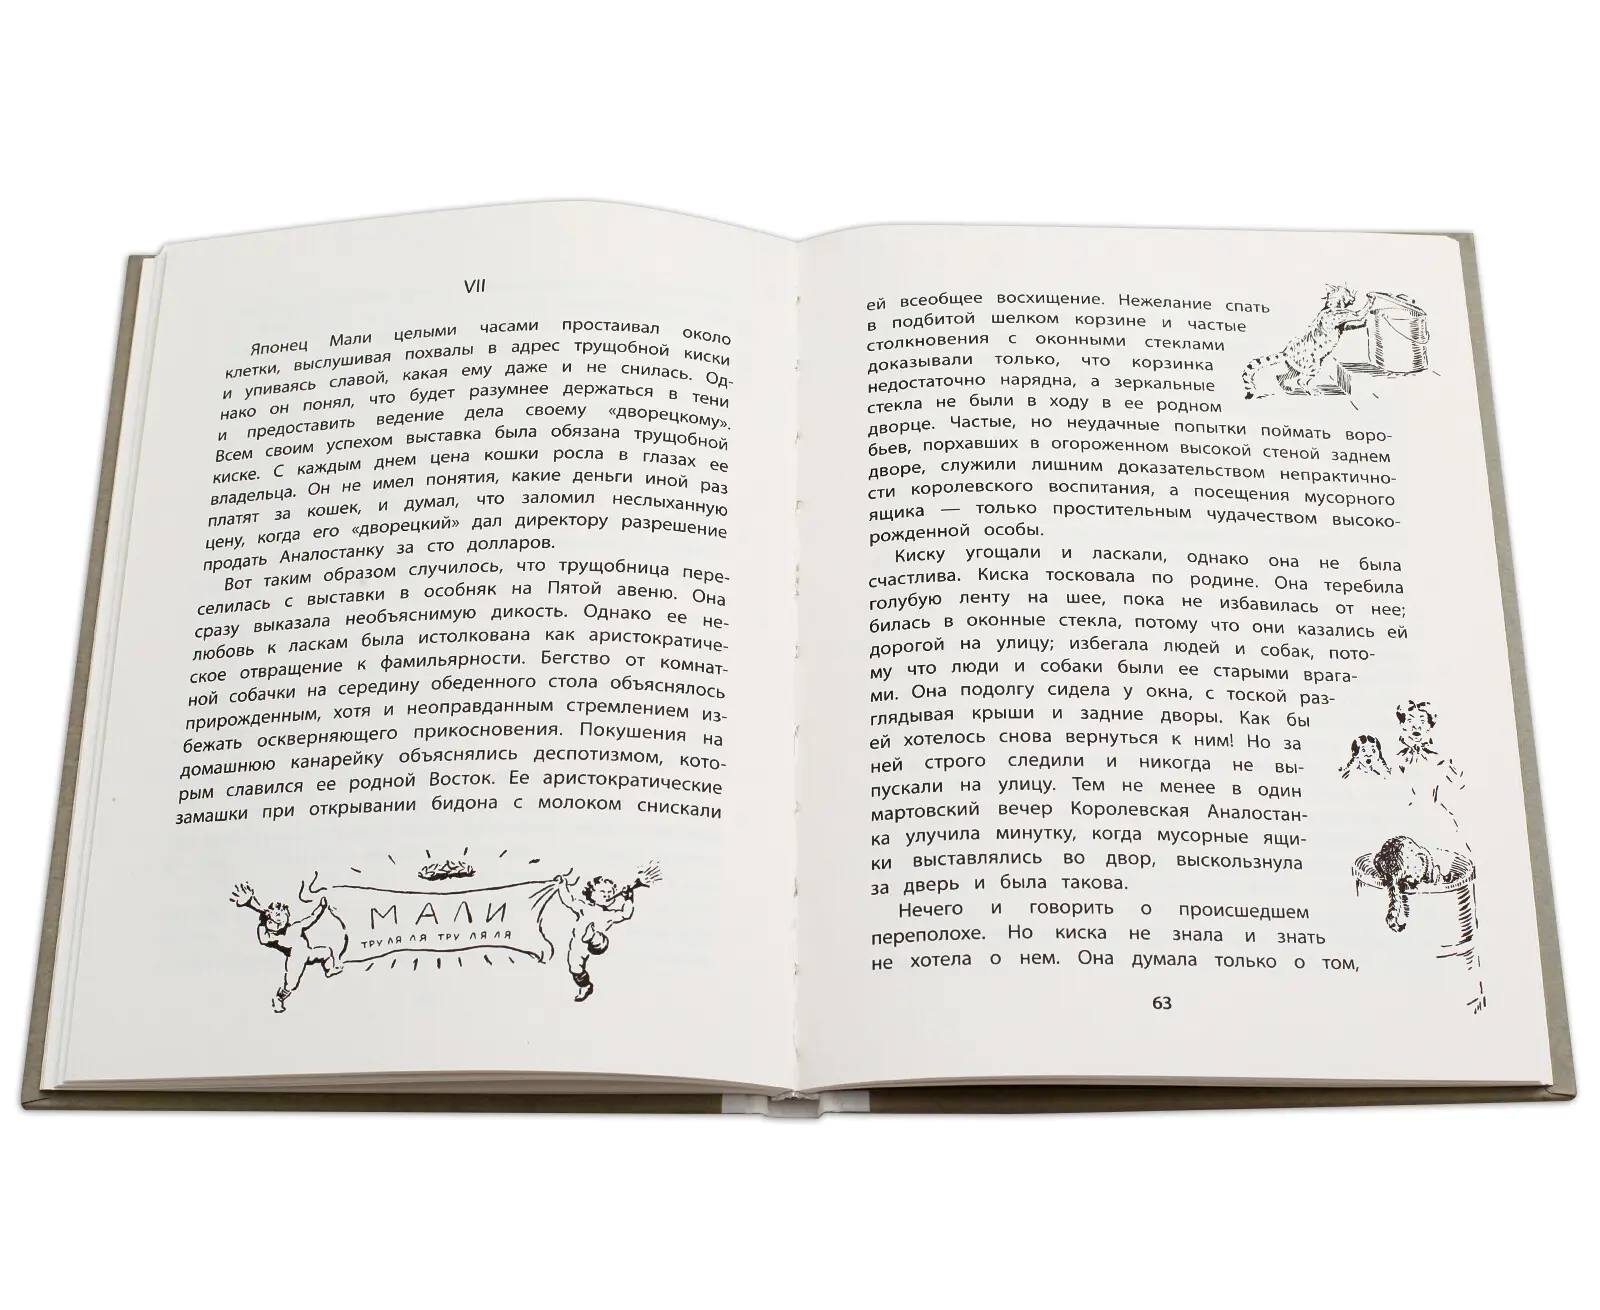 VII
Японец Мали целыми часами простаивал около
клетки, выслушивая похвалы в адрес трущобной киски
и упиваясь славой, какая ему даже и не снилась. Од-
нако он понял, что будет разумнее держаться в тени
и предоставить ведение дела своему «дворецкому».
Всем своим успехом выставка была обязана трущобной
киске. С каждым днем цена кошки росла в глазах ее
владельца. Он не имел понятия, какие деньги иной раз
платят за кошек, и думал, что заломил неслыханную
цену, когда его «дворецкий» дал директору разрешение
продать Аналостанку за сто долларов.
Вот таким образом случилось, что трущобница пере-
селилась с выставки в особняк на Пятой авеню. Она
сразу выказала необъяснимую дикость. Однако ее не-
любовь к ласкам была истолкована как аристократиче-
ское отвращение к фамильярности. Бегство от комнат-
ной собачки на середину обеденного стола объяснялось
прирожденным, хотя и неоправданным стремлением из-
бежать оскверняющего прикосновения. Покушения на
домашнюю канарейку объяснялись деспотизмом, кото-
рым славился ее родной Восток. Ее аристократические
замашки при открывании бидона с молоком снискали
МАЛИ
ТРУ ЛЯ ЛЯ ТРУ ЛЯ ЛЯ
ей всеобщее восхищение. Нежелание спать
в подбитой шелком корзине и частые
столкновения с оконными стеклами
доказывали только, что корзинка
недостаточно нарядна, а зеркальные
стекла не были в ходу в ее родном
дворце. Частые, но неудачные попытки поймать воро-
бьев, порхавших в огороженном высокой стеной заднем
дворе, служили лишним доказательством непрактично-
сти королевского воспитания, а посещения мусорного
ящика — только простительным чудачеством высоко-
рожденной особы.
Киску угощали и ласкали, однако она не была
счастлива. Киска тосковала по родине. Она теребила
голубую ленту на шее, пока не избавилась от нее;
билась в оконные стекла, потому что они казались ей
дорогой на улицу; избегала людей и собак, пото-
му что люди и собаки были ее старыми врага-
ми. Она подолгу сидела у окна, с тоской раз-
глядывая крыши и задние дворы. Как бы
ей хотелось снова вернуться к ним! Но за
ней строго следили и никогда не вы-
пускали на улицу. Тем не менее в один
мартовский вечер Королевская Аналостан-
ка улучила минутку, когда мусорные ящи-
ки выставлялись во двор, выскользнула
за дверь и была такова.
Нечего и говорить о происшедшем
переполохе. Но киска не знала и знать
не хотела о нем. Она думала только о том,
63